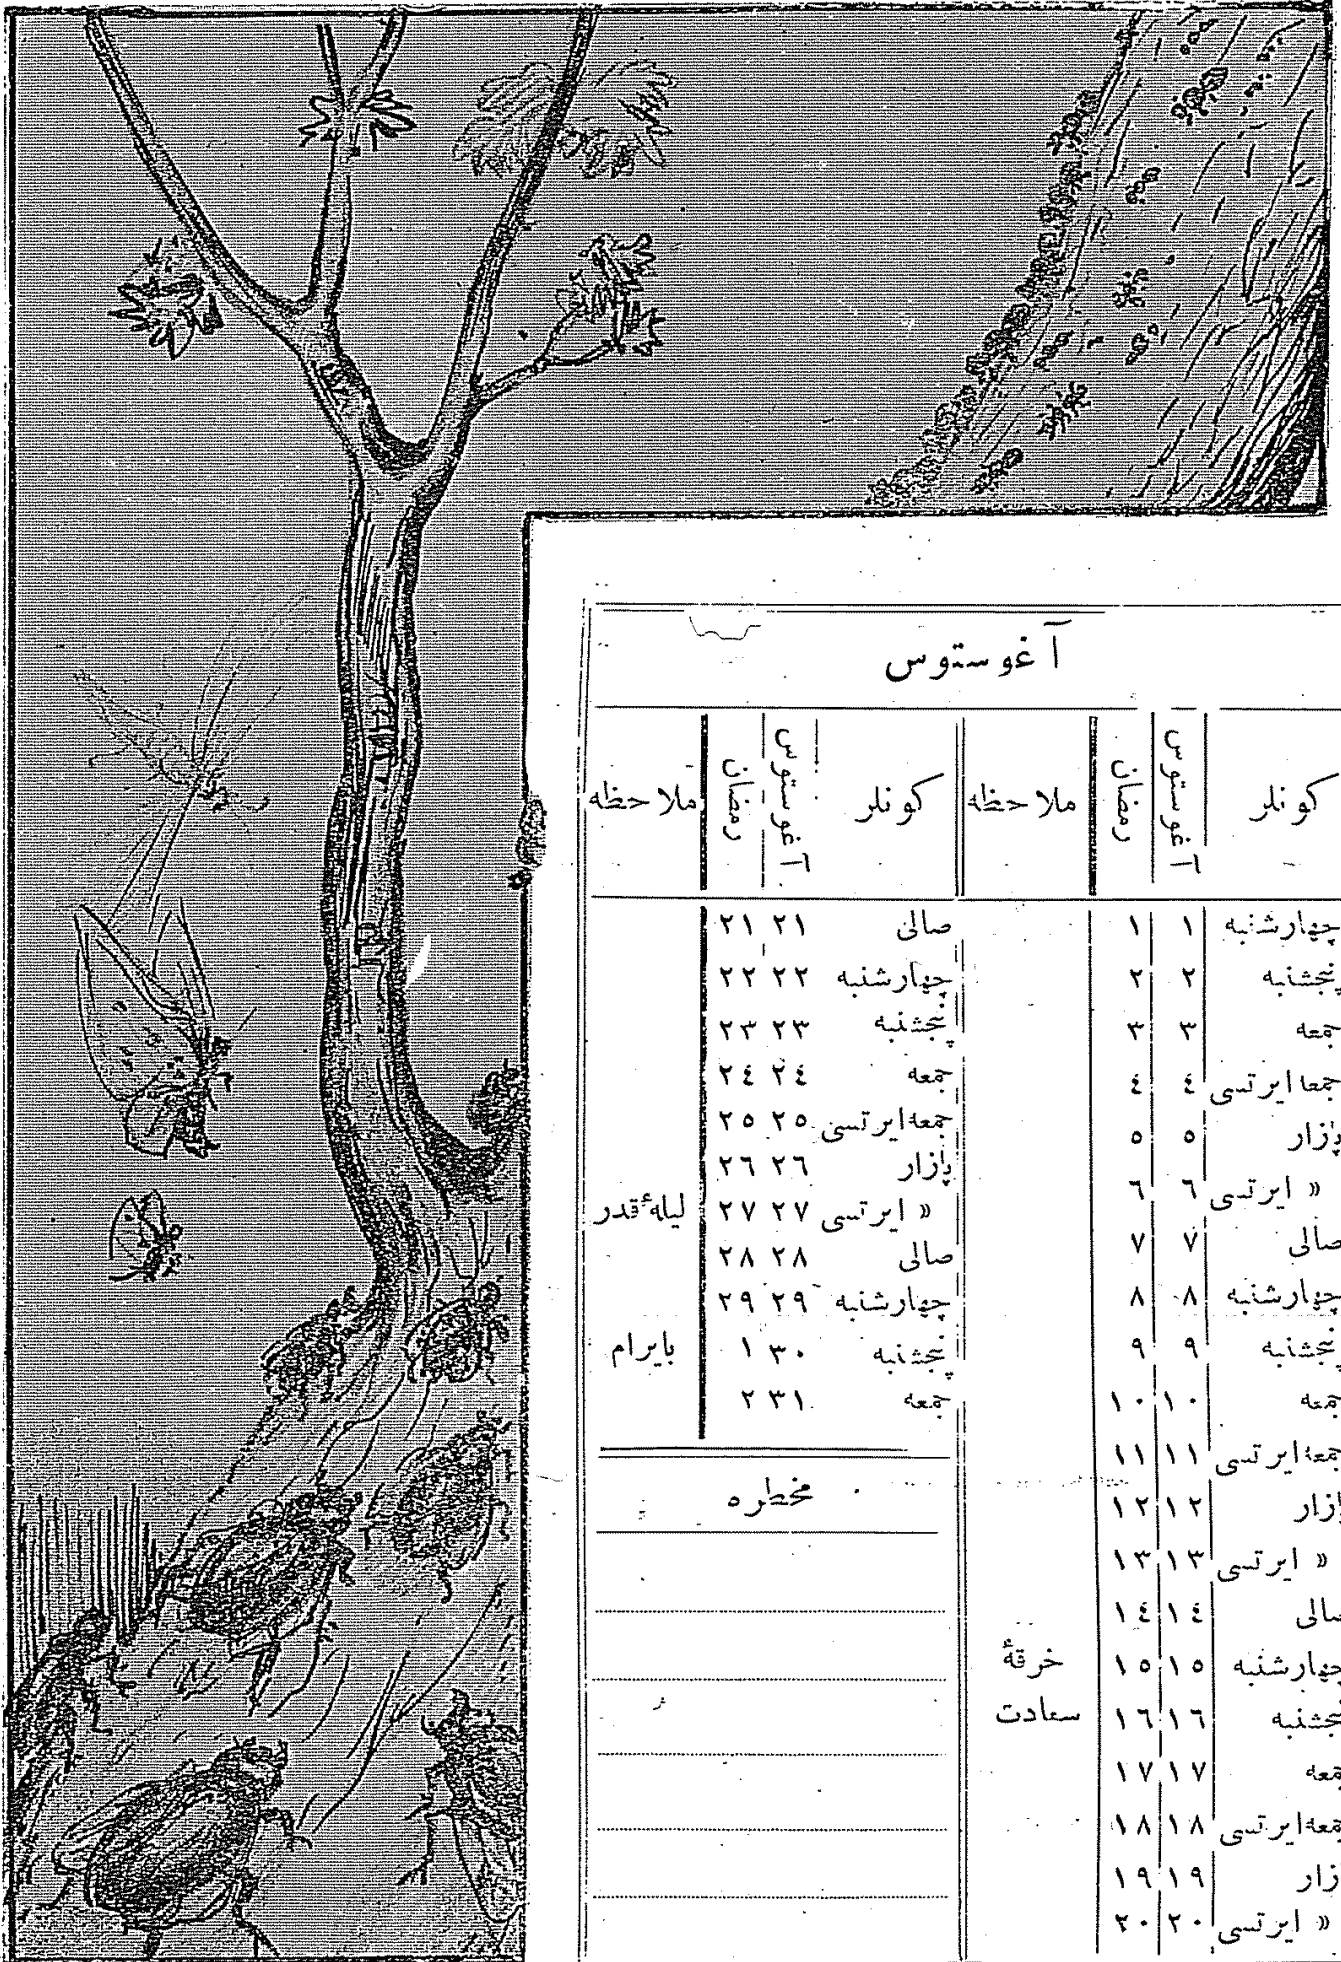 آغوستوس
كونلر آغوستوس رمضان ملاحظه
چهارشنبه ١ ١
پنجشنبه ٢ ٢
جمعه ٣ ٣
جمعا ايرتسى ٤ ٤
پازار ٥ ٥
» ايرتسى ٦ ٦
صالى ٧ ٧
چهارشنبه ٨ ٨
پنجشنبه ٩ ٩
جمعه ١٠ ١٠
جمعه ايرتسى ١١ ١١
پازار ١٢ ١٢
» ايرتسى ١٣ ١٣
صالى ١٤ ١٤
چهارشنبه ١٥ ١٥ خرقهٔ
پنجشنبه ١٦ ١٦ سعادت
جمعه ١٧ ١٧
جمعه ايرتسى ١٨ ١٨
پازار ١٩ ١٩
» ايرتسى ٢٠ ٢٠
كونلر آغوستوس رمضان ملاحظه
صالى ٢١ ٢١
چهارشنبه ٢٢ ٢٢
پنجشنبه ٢٣ ٢٣
جمعه ٢٤ ٢٤
جمعه ايرتسى ٢٥ ٢٥
پازار ٢٦ ٢٦
» ايرتسى ٢٧ ٢٧ ليلهٔ قدر
صالى ٢٨ ٢٨
چهارشنبه ٢٩ ٢٩
پنجشنبه ٣٠ ١ بايرام
جمعه ٣١ ٢
مخطره